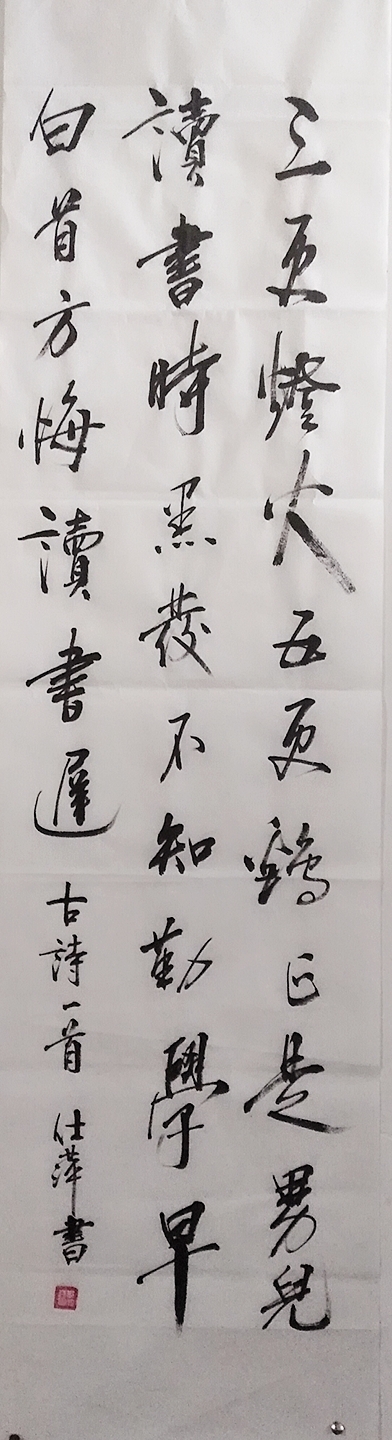 三更燈火五更鷄正是男兒
讀書時黑發不知勤學早
白首方悔讀書遲古詩一首 仕萍書